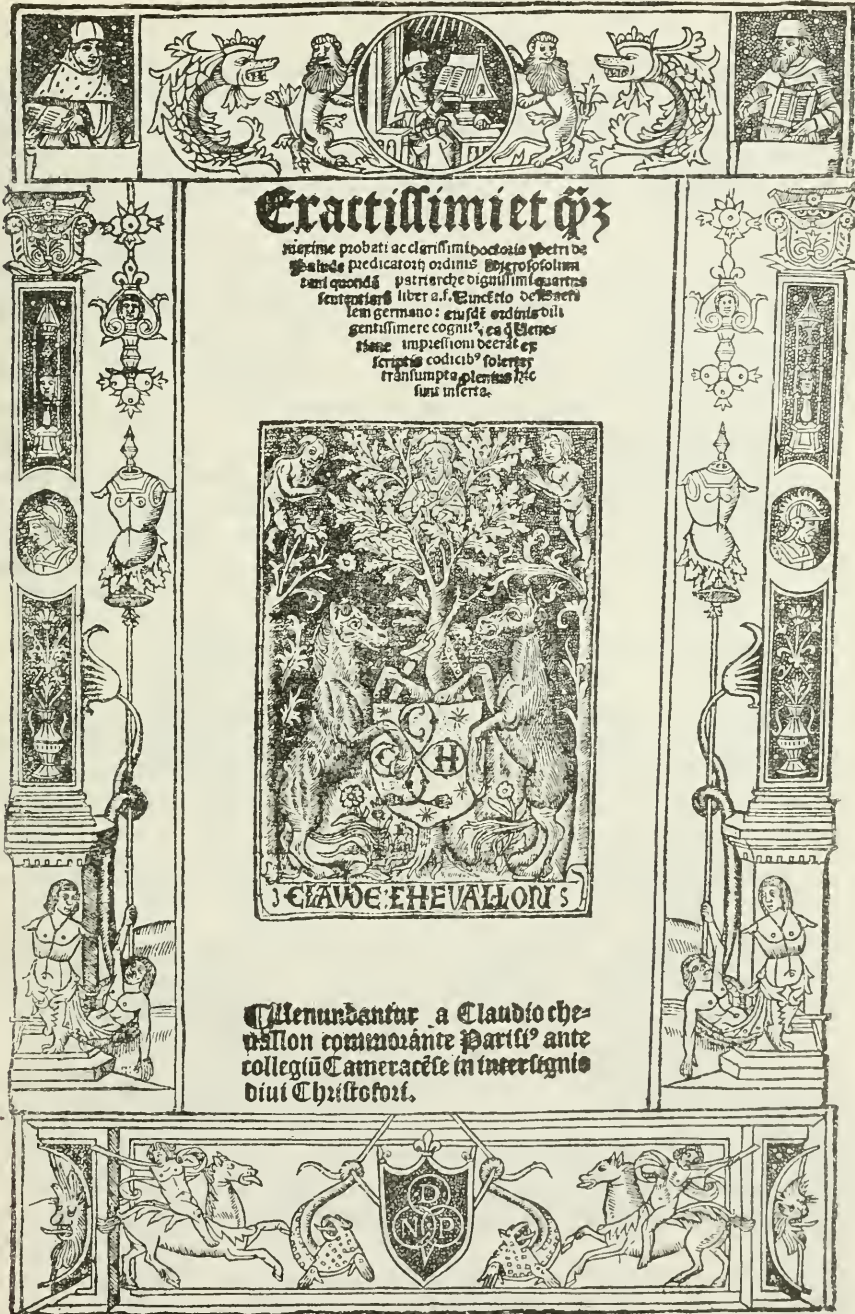 Exactissimi et q̃ꝫ
maxime probati ac clarissimi doctoris Petri de
Palude predicatorũ ordinis Hierosolimi
tani quondã patriarche dignissimi quartus
sententiarũ liber a.f. Vincẽtio de
lem germano: eiusdẽ ordinis dili
gentissime recognitꝰ, ea q̃ Vene
tiane impressioni deerãt ex
scriptis codicibꝰ solerter
transumpta plenius hic
sunt inserta.
C
C H
CLAVDE CHEVALLON
Venundantur a Claudio che-
uallon commorante Parisiꝰ ante
collegiũ Cameracẽse in intersignio
diui Christofori.
D
N P